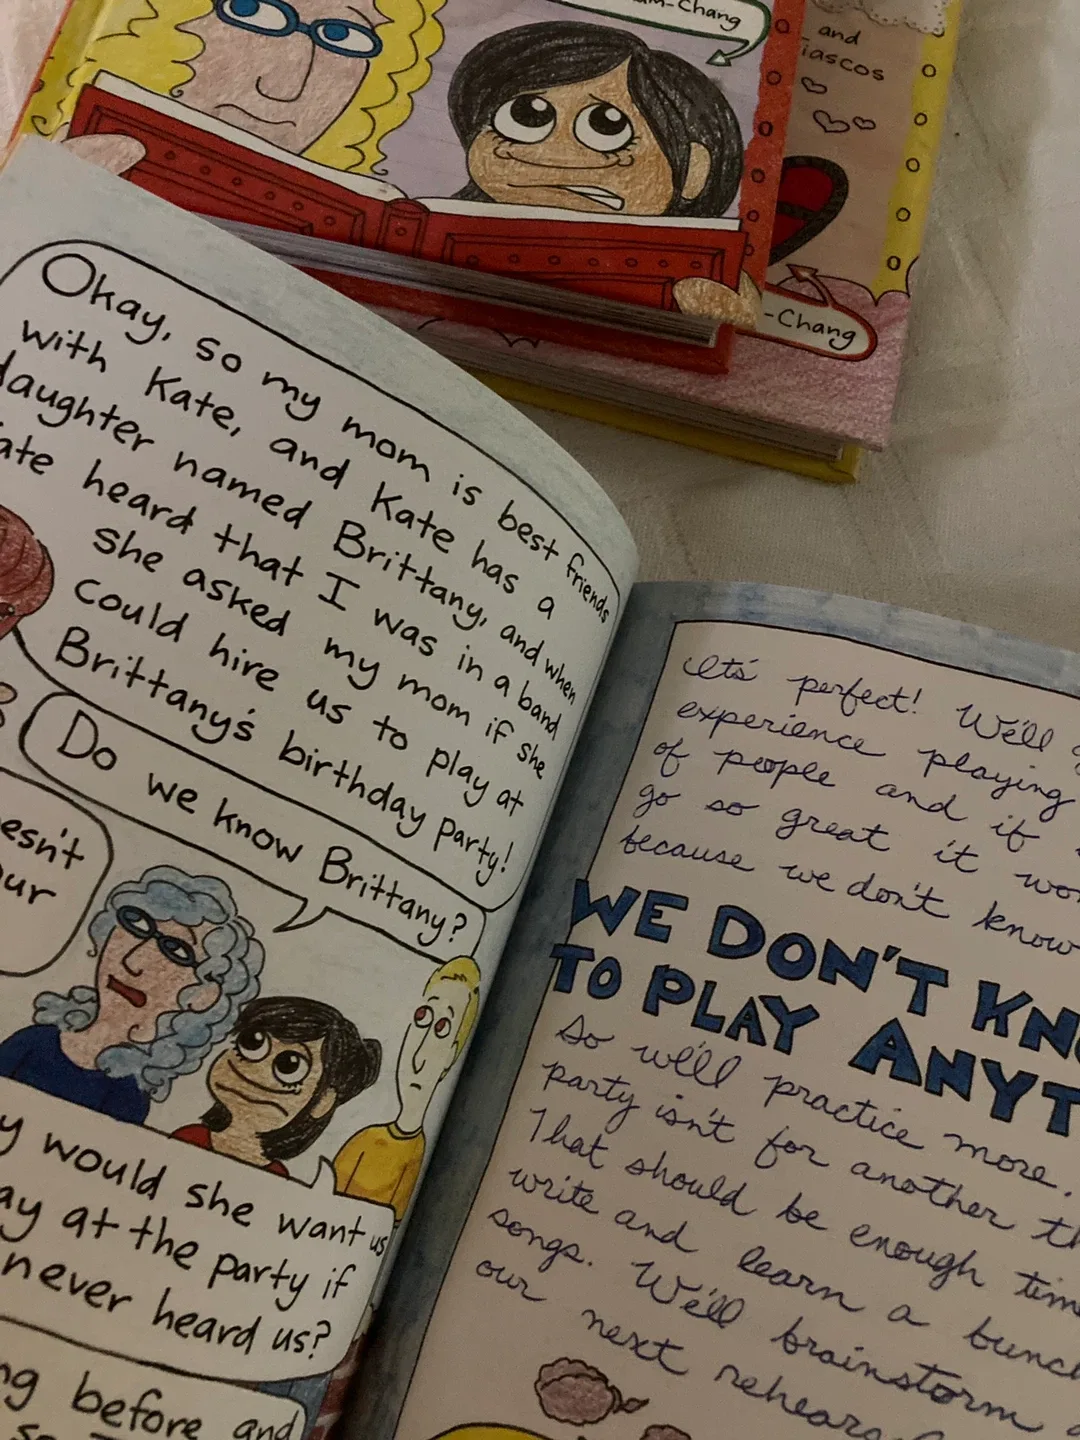 -Chang
and
iascos
-Chang
Okay, so my mom is best friends
with Kate, and Kate has a
daughter named Brittany, and when
ate heard that I was in a band
she asked my mom if she
could hire us to play at
Brittany's birthday party!
Do we know Brittany?
esn't
our
y would she want us
ay at the party if
never heard us?
ng before and
It's perfect! We'll
experience playing
of people and if
go so great it won
because we don't know
WE DON'T KN
TO PLAY ANYT
So we'll practice more.
party isn't for another th
That should be enough tim
write and learn a bunch
songs. We'll brainstorm a
our next rehears